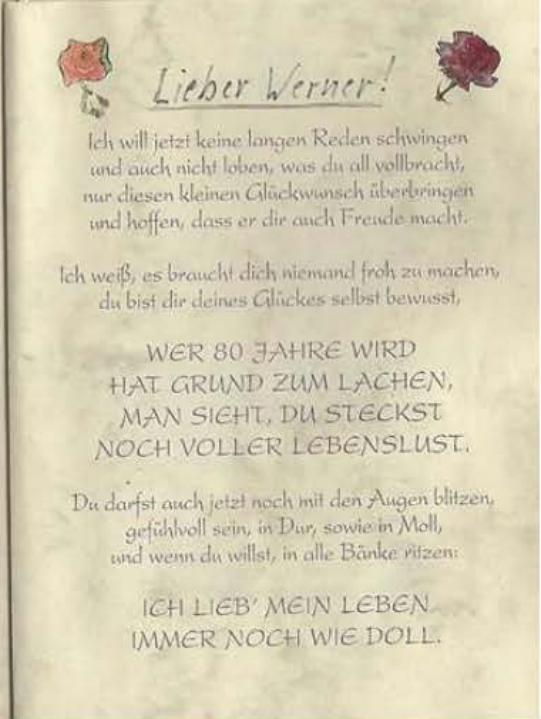 Lieber Werner!
Ich will jetzt keine langen Reden schwingen
und auch nicht loben, was du all vollbracht,
nur diesen kleinen Glückwunsch überbringen
und hoffen, dass er dir auch Freude macht.
Ich weiß, es braucht dich niemand froh zu machen,
du bist dir deines Glückes selbst bewusst,
WER 80 JAHRE WIRD
HAT GRUND ZUM LACHEN,
MAN SIEHT, DU STECKST
NOCH VOLLER LEBENSLUST.
Du darfst auch jetzt noch mit den Augen blitzen,
gefühlvoll sein, in Dur, sowie in Moll,
und wenn du willst, in alle Bänke ritzen:
ICH LIEB' MEIN LEBEN
IMMER NOCH WIE DOLL.